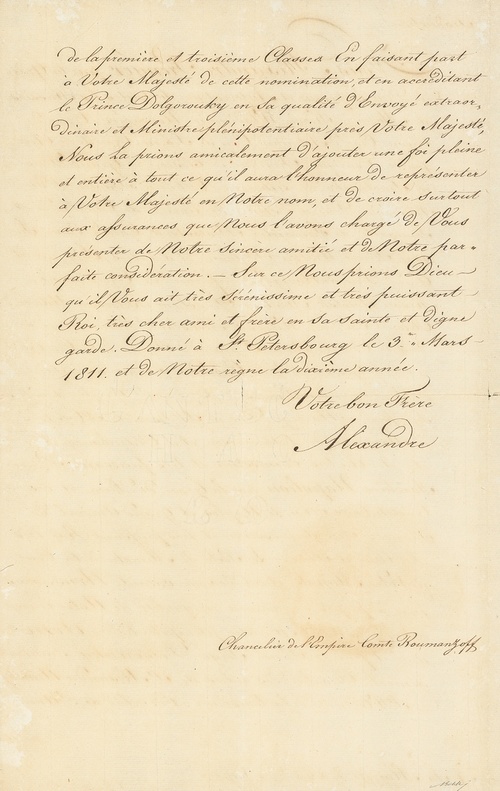 de la première et troisième Classes. En faisant part
à Votre Majesté de cette nomination, et en accréditant
le Prince Dolgorouky en Sa qualité d'Envoyé extraor-
dinaire et Ministre plénipotentiaire près Votre Majesté,
Nous La prions amicalement d'ajouter une foi pleine
et entière à tout ce qu'il aura l'honneur de représenter
à Votre Majesté en Notre nom, et de croire surtout
aux assurances que Nous l'avons chargé de Vous
présenter de Notre sincère amitié et de Notre par=
faite considération. — Sur ce Nous prions Dieu —
qu'il Vous ait très Sérénissime et très puissant
Roi, très cher ami et frère en sa sainte et digne
garde. Donné à St Pétersbourg le 3. Mars
1811. et de Notre règne la dixième année.
Votre bon Frère
Alexandre
Chancelier de l'Empire Comte Roumanzoff